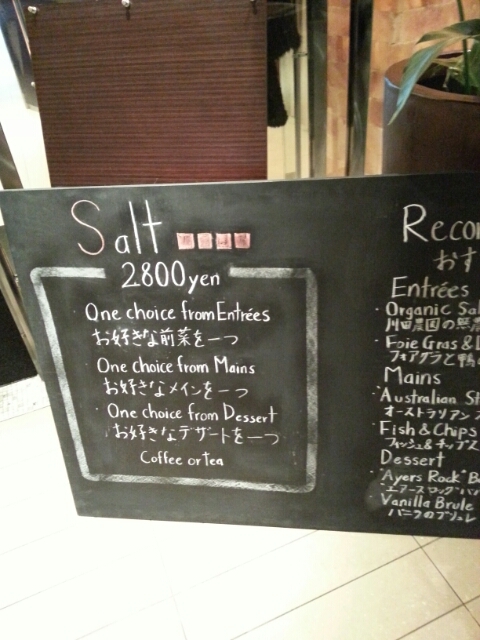 Salt
2800yen
One choice from Entrées
お好きな前菜を一つ
One choice from Mains
お好きなメインを一つ
One choice from Dessert
お好きなデザートを一つ
Coffee or tea
おす
Entrées
・Organic
川田農園の
・Foie Gras &
フォアグラと鴨
Mains
・Australian
オーストラリアン
・Fish & Chips
フィッシュ&チップス
Dessert
・"Ayers Rock"
"エアーズロック"
・Vanilla Brule
バニラのブリュレ